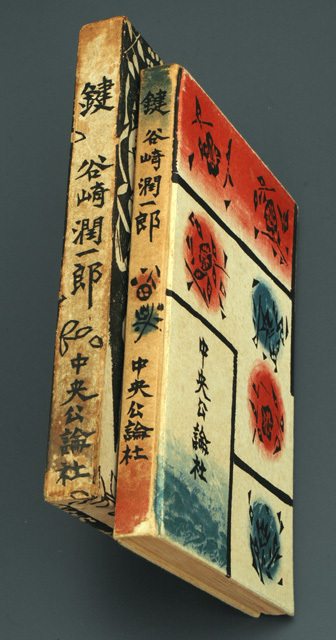 鍵
谷崎潤一郎
中央公論社
鍵
谷崎潤一郎
中央公論社
中央公論社